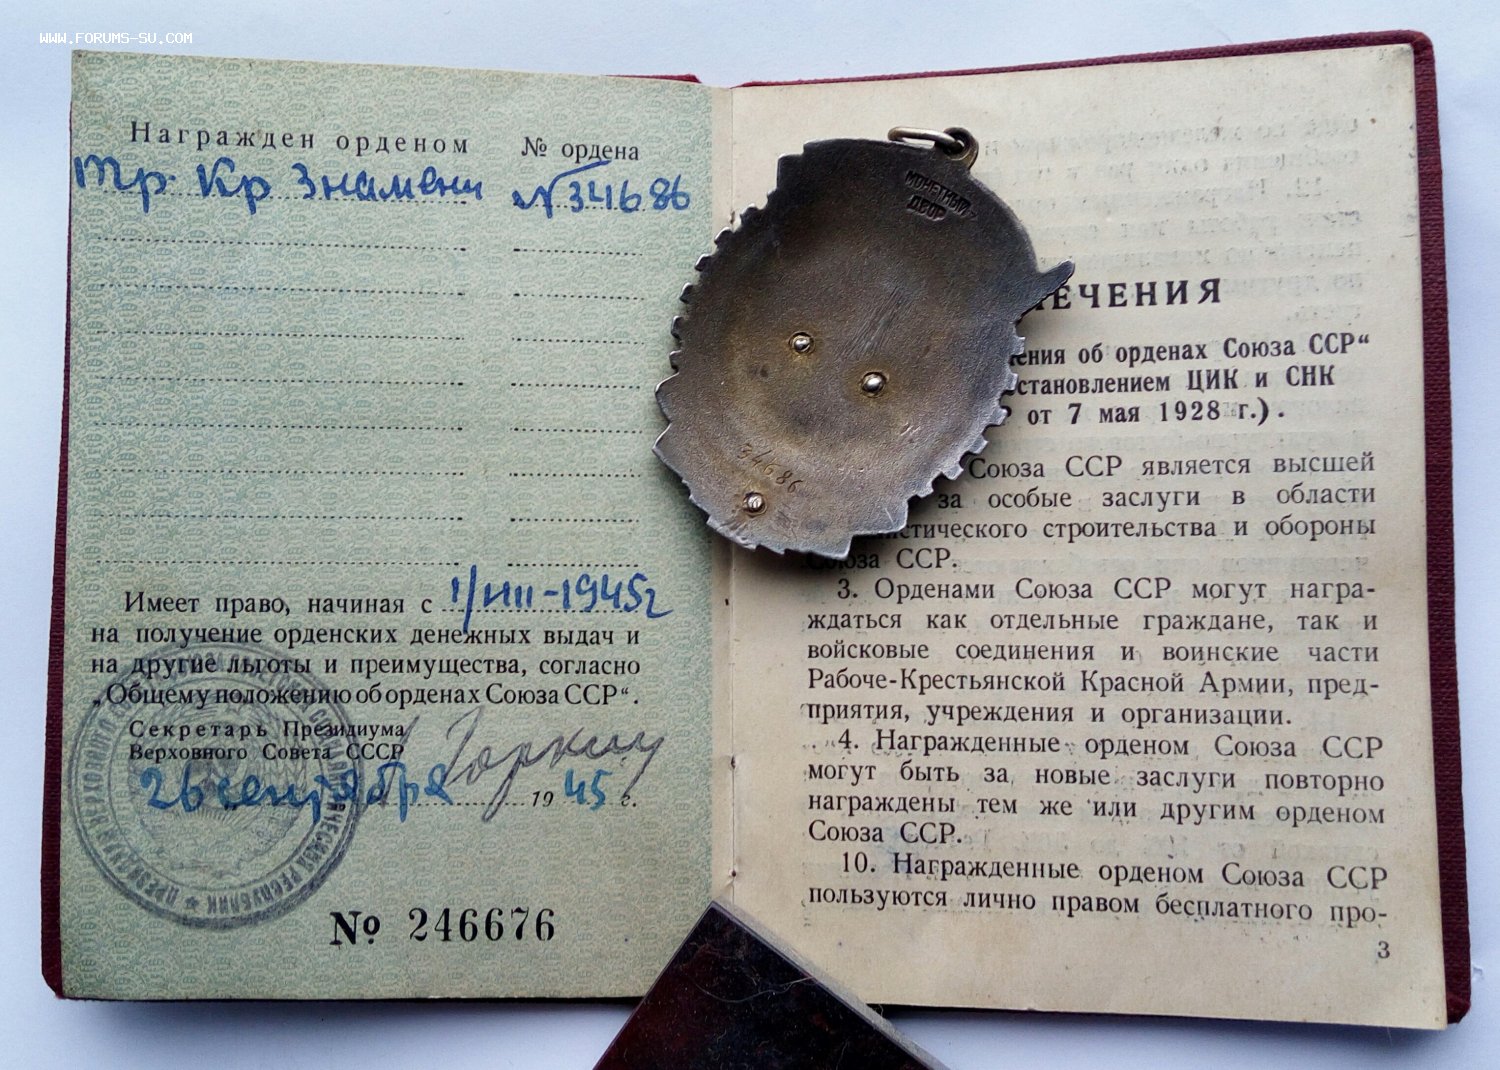 WWW.FORUMS-SU.COM
Награжден орденом № ордена
Тр. Кр Знамени №34686
Имеет право, начиная с 1/VIII-1945г
на получение орденских денежных выдач и
на другие льготы и преимущества, согласно
„Общему положению об орденах Союза ССР“.
Секретарь Президиума
Верховного Совета СССР
Горкин
26 сентября 1945 г.
№ 246676
МОНЕТНЫЙ
ДВОР
34686
ЕЧЕНИЯ
ения об орденах Союза ССР“
становлением ЦИК и СНК
Р от 7 мая 1928 г.).
Союза ССР является высшей
за особые заслуги в области
истического строительства и обороны
Союза ССР.
3. Орденами Союза ССР могут награ-
ждаться как отдельные граждане, так и
войсковые соединения и воинские части
Рабоче-Крестьянской Красной Армии, пред-
приятия, учреждения и организации.
4. Награжденные орденом Союза ССР
могут быть за новые заслуги повторно
награждены тем же или другим орденом
Союза ССР.
10. Награжденные орденом Союза ССР
пользуются лично правом бесплатного про-
3